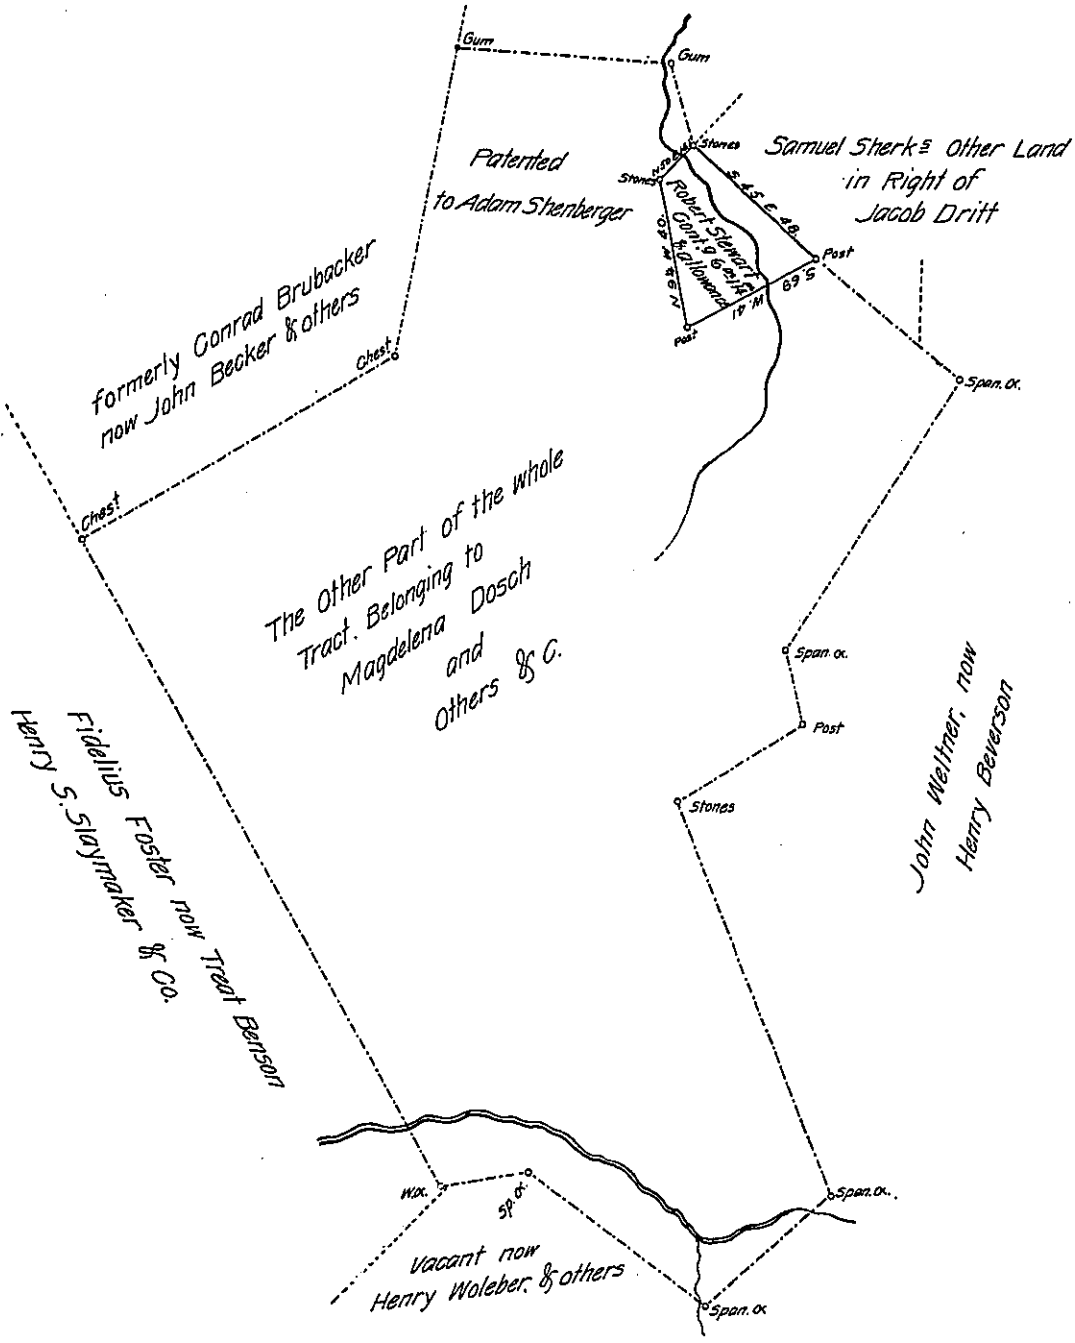 Gum
Gum
Patented
to Adam Shenberger
Stones
Stones
Samuel Sherks Other Land
in Right of
Jacob Dritt
S. 45 E. 48.
Robert Stewart
Cont.g 6 a
& allowance
N 9¾ W 40.
S. 69 W. 41
Post
Post
formerly Conrad Brubacker
now John Becker & others
Chest
Chest
Span. o.
The Other Part of the whole
Tract. Belonging to
Magdelena Dosch
and
Others & C.
Span. o.
Post
Stones
John Weltner, now
Henry Beverson
Fidelius Foster now Treat Benson
Henry S. Slaymaker & Co.
W.o.
Sp. o.
Span. o.
Vacant now
Henry Woleber. & others
Span. o